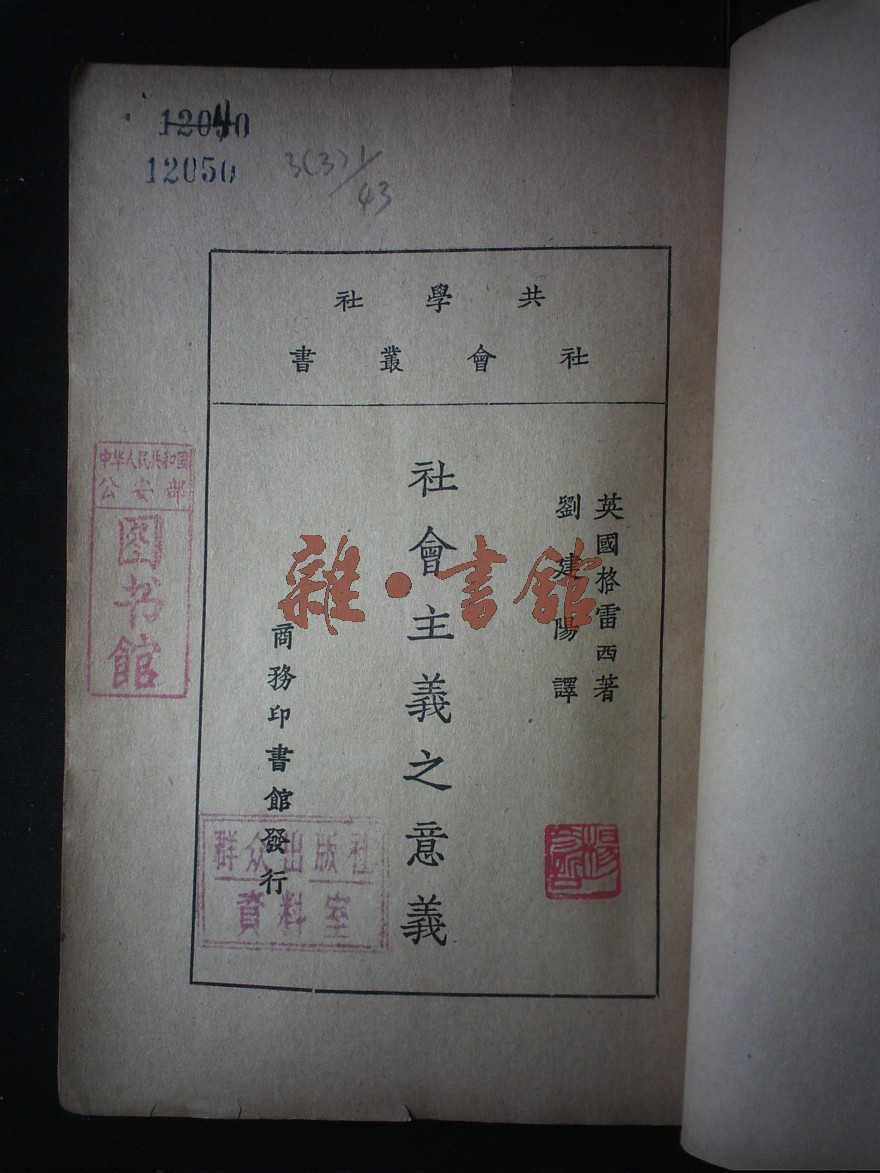 12040
12050
3(3)1/43
共學社
社會叢書
英國格雷西著
劉建陽譯
社會主義之意義
商務印書館發行
中华人民共和国
公安部
图书館
群众出版社
資料室
雜·書館